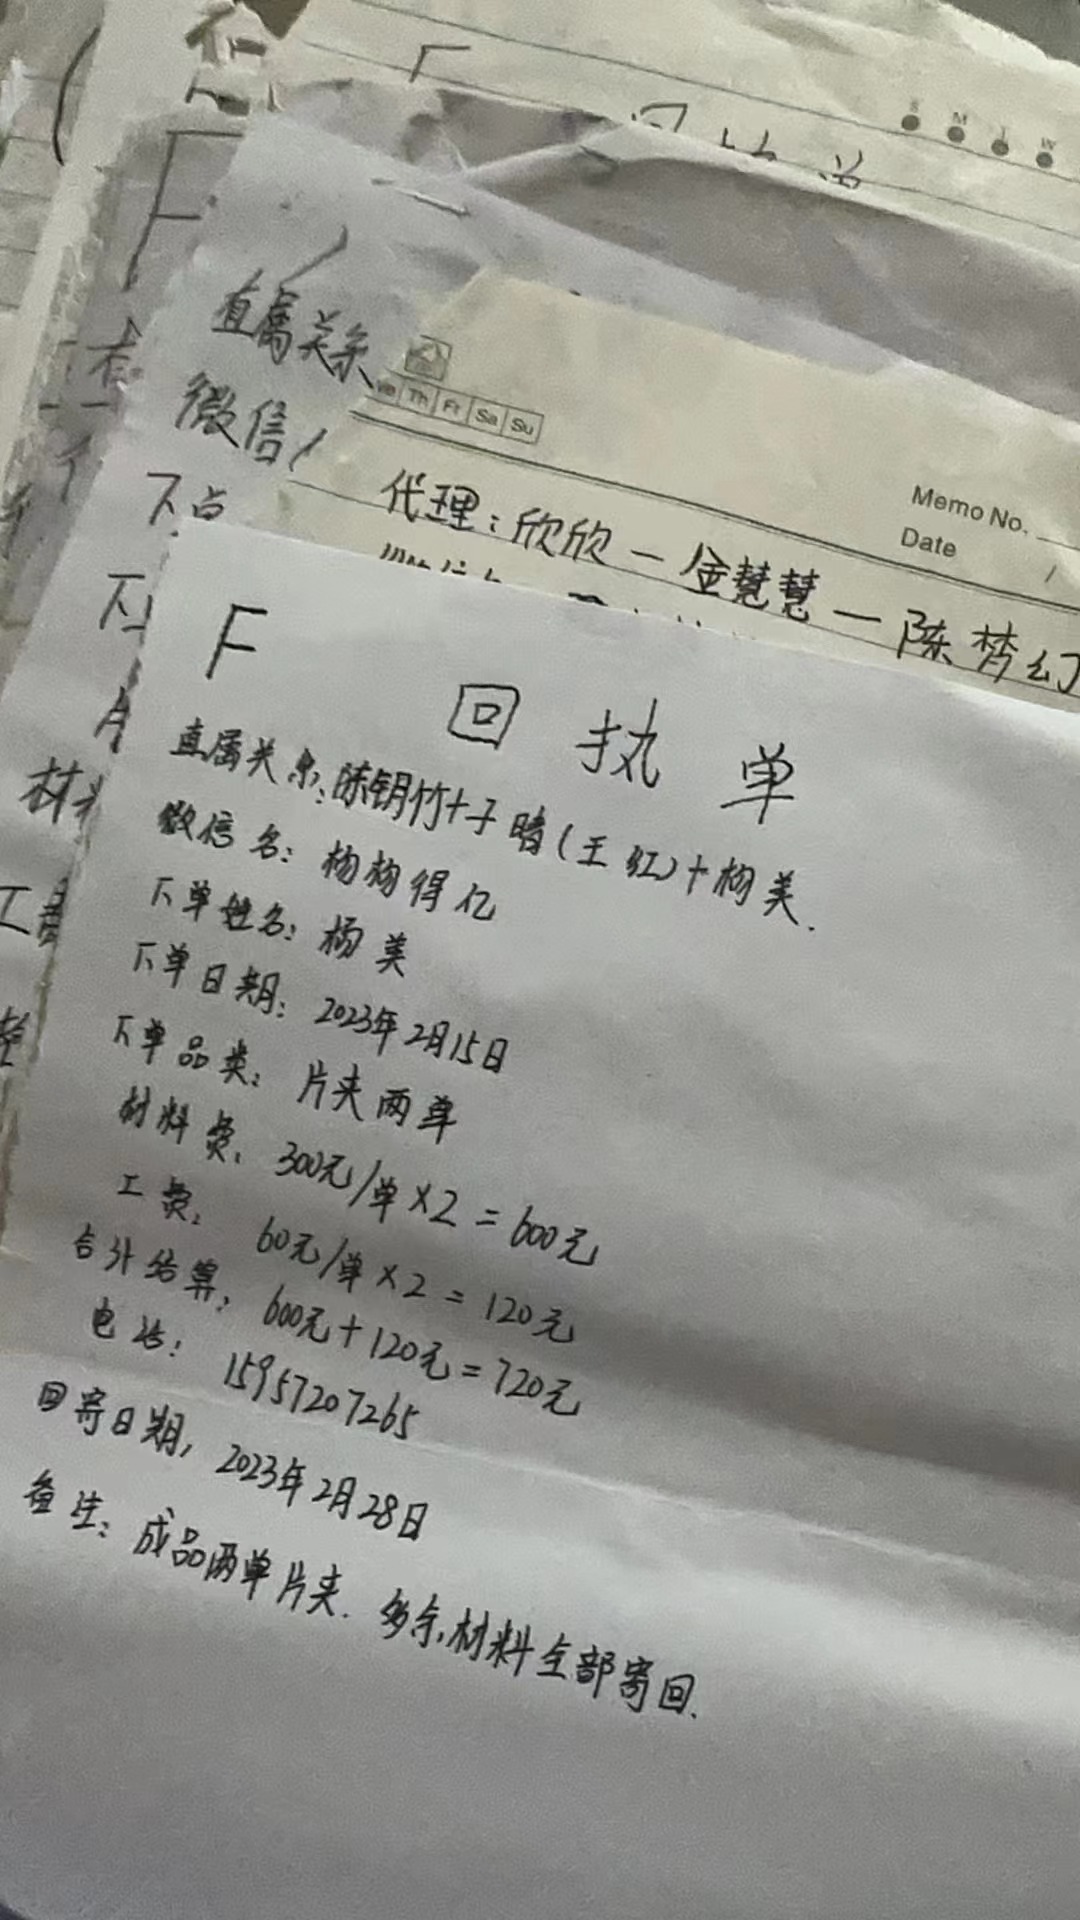 S M T W
直属关系
微信
We Th Fr Sa Su
Memo No.
Date /
代理：欣欣一金慧慧一陈梦幻
F
回 执 单
直属关系：陈钥竹+子晴(王红)+杨美.
微信名：杨杨得亿
下单姓名：杨美
下单日期：2023年2月15日
下单品类：片夹两单
材料费：300元/单×2=600元
工费：60元/单×2=120元
合计结算：600元+120元=720元
电话：15957207265
回寄日期，2023年2月28日
备注：成品两单片夹.多余材料全部寄回.